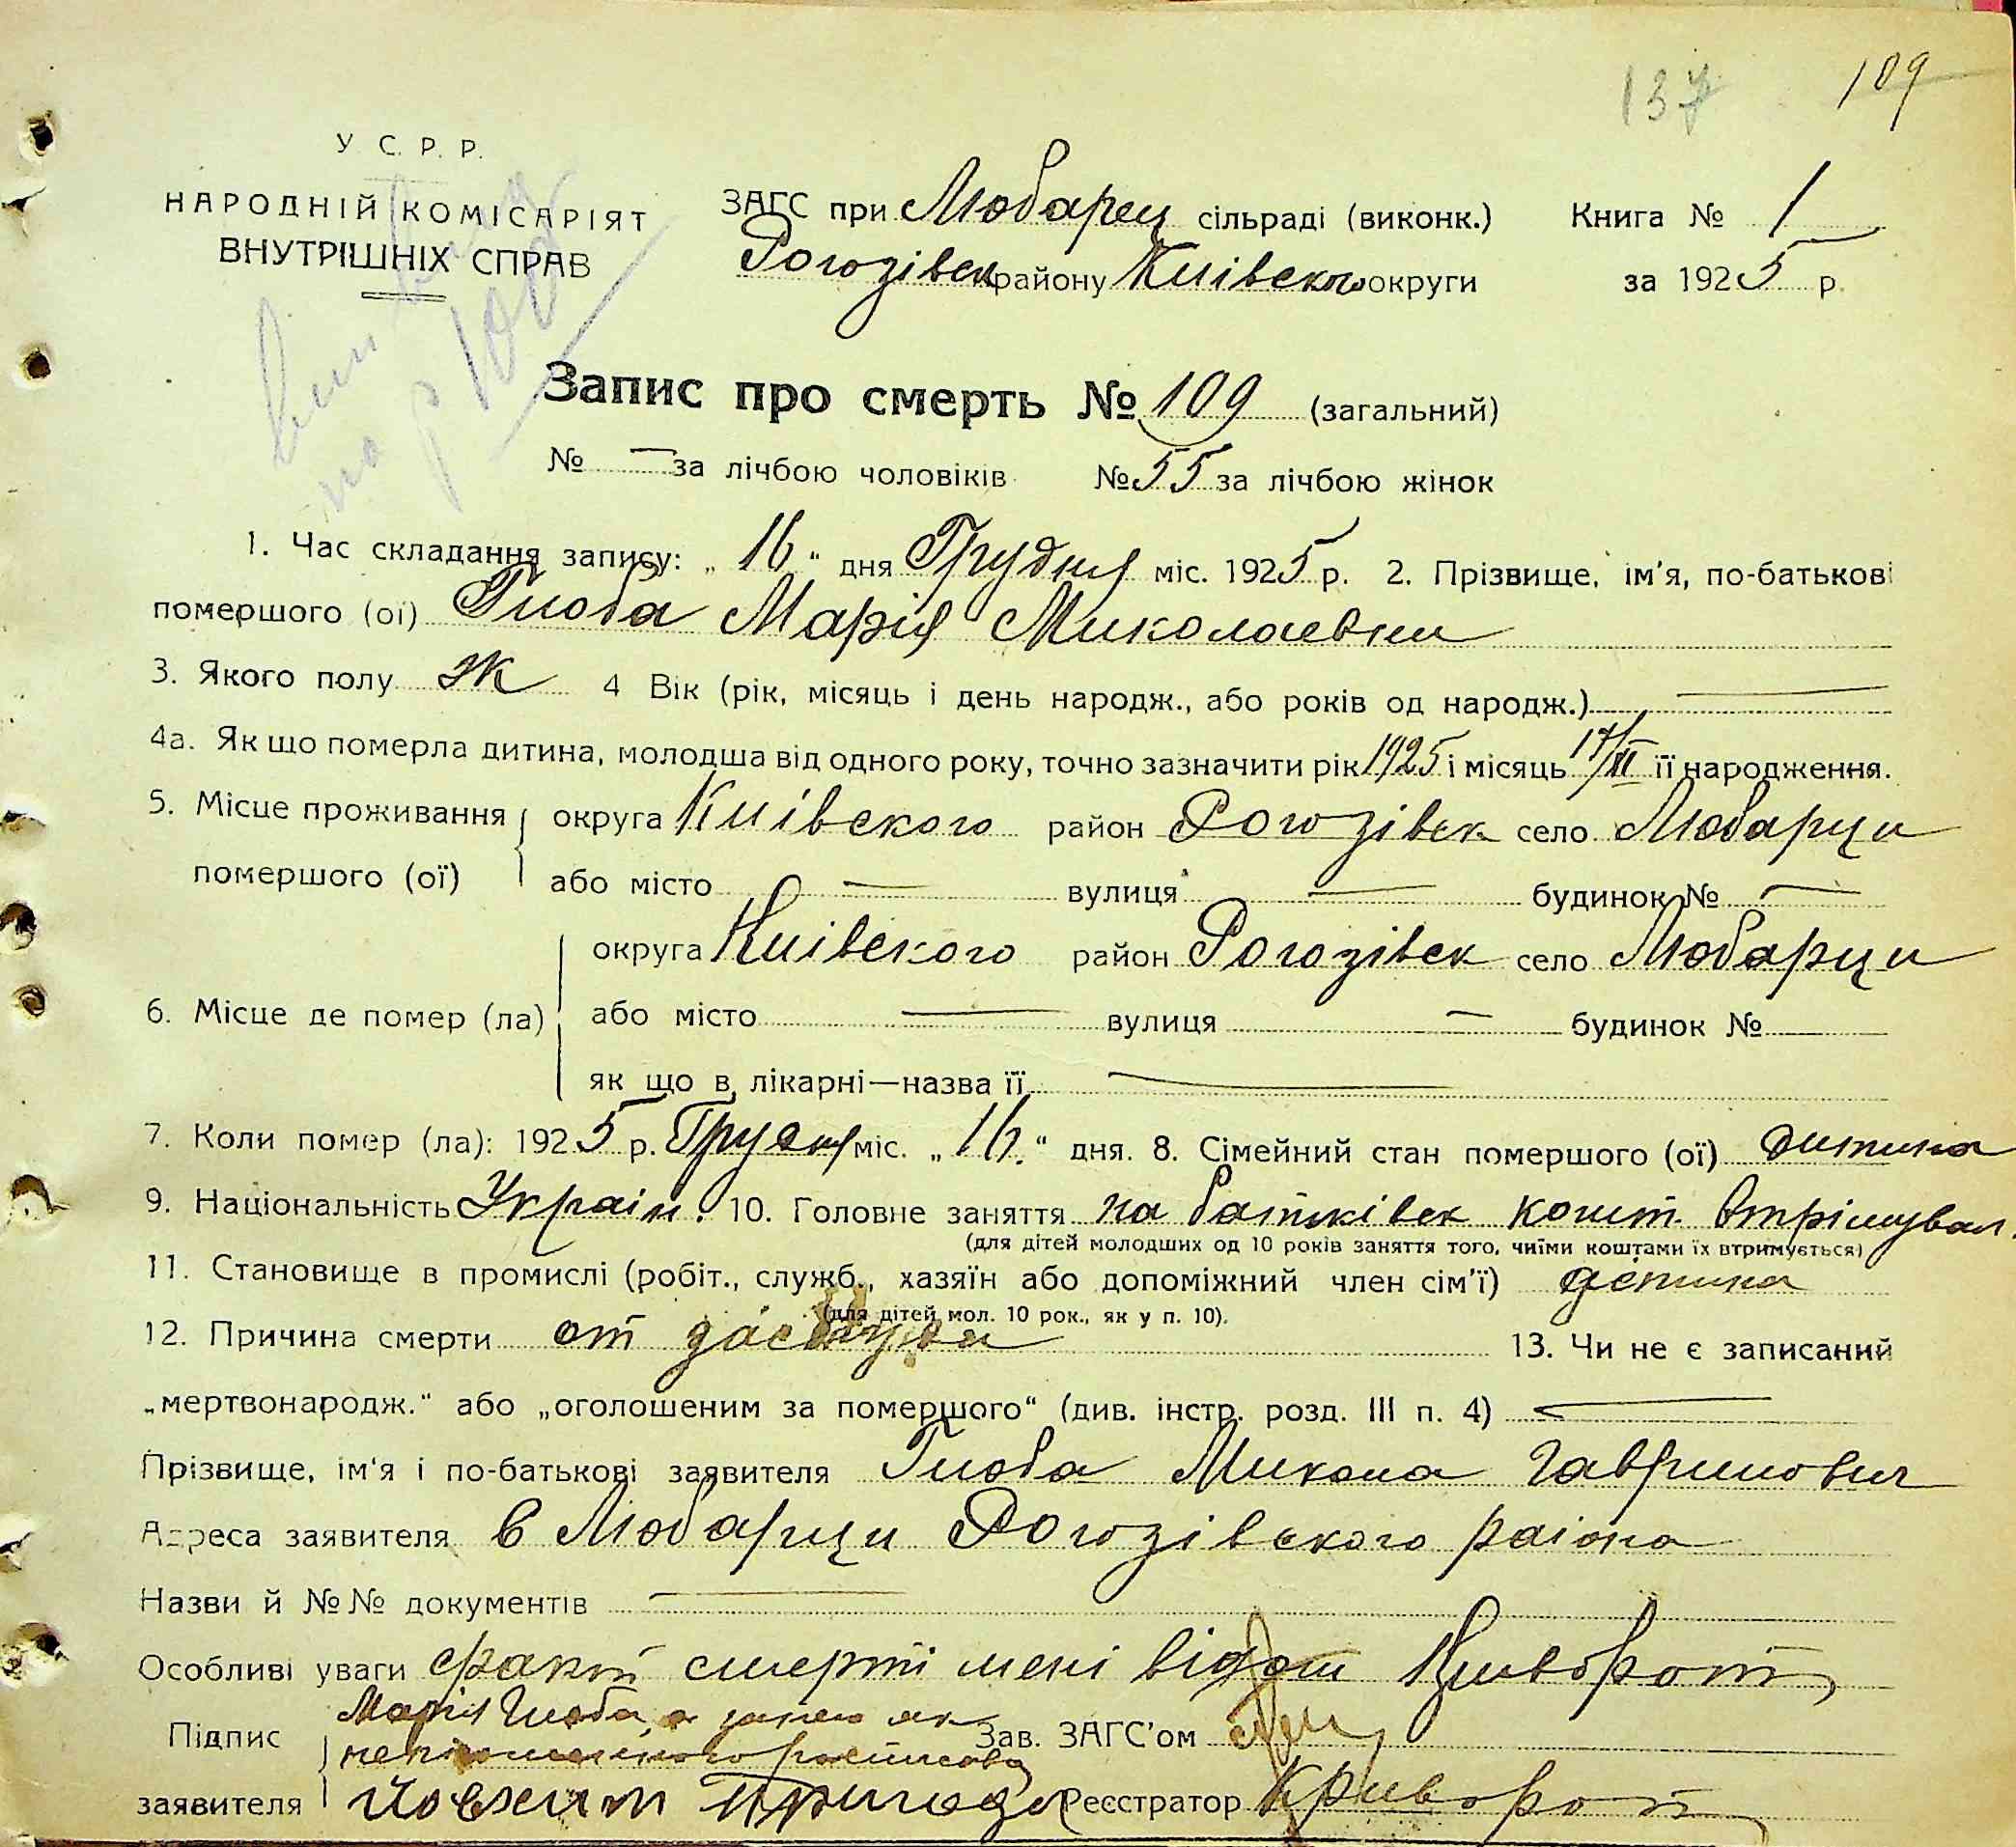 137 109
У. С. Р. Р.
НАРОДНІЙ КОМІСАРІЯТ
ВНУТРІШНІХ СПРАВ
ЗАГС при Любарец сільраді (виконк.) Книга № 1
Рогозівск району Киівского округи за 1925 р.
Запис про смерть № 109 (загальний)
№ — за лічбою чоловіків № 55 за лічбою жінок
1. Час складання запису: „16“ дня Грудня міс. 1925 р. 2. Прізвище, ім'я, по-батькові
помершого (ої) Гиоба Марія Миколаевни
3. Якого полу ж 4 Вік (рік, місяць і день народж., або років од народж.) —
4а. Як що померла дитина, молодша від одного року, точно зазначити рік 1925 і місяць 17/XI її народження.
5. Місце проживання округа Киівского район Рогозівск село Любарци
помершого (ої) або місто — вулиця — будинок № —
округа Киівского район Рогозівск село Любарци
6. Місце де помер (ла) або місто — вулиця — будинок №
як що в лікарні—назва її —
7. Коли помер (ла): 1925 р. Грудня міс. „16.“ дня. 8. Сімейний стан помершого (ої) дитина
9. Національність Украін. 10. Головне заняття на батьківск кошт. втрімувал.
(для дітей молодших од 10 років заняття того, чиїми коштами їх втримується)
11. Становище в промислі (робіт., служб., хазяїн або допоміжний член сім'ї) детина
(для дітей мол. 10 рок., як у п. 10).
12. Причина смерти от 13. Чи не є записаний
„мертвонародж.“ або „оголошеним за помершого“ (див. інстр. розд. III п. 4) —
Прізвище, ім'я і по-батькові заявителя Гиоба Микола Гаврилович
Адреса заявителя в Любарци Рогозівского раіона
Назви й №№ документів —
Особливі уваги факт смерті мені відом Криворот
Марія Гиоба, а за нею як
Підпис Зав. ЗАГС'ом
заявителя Реєстратор Криворот